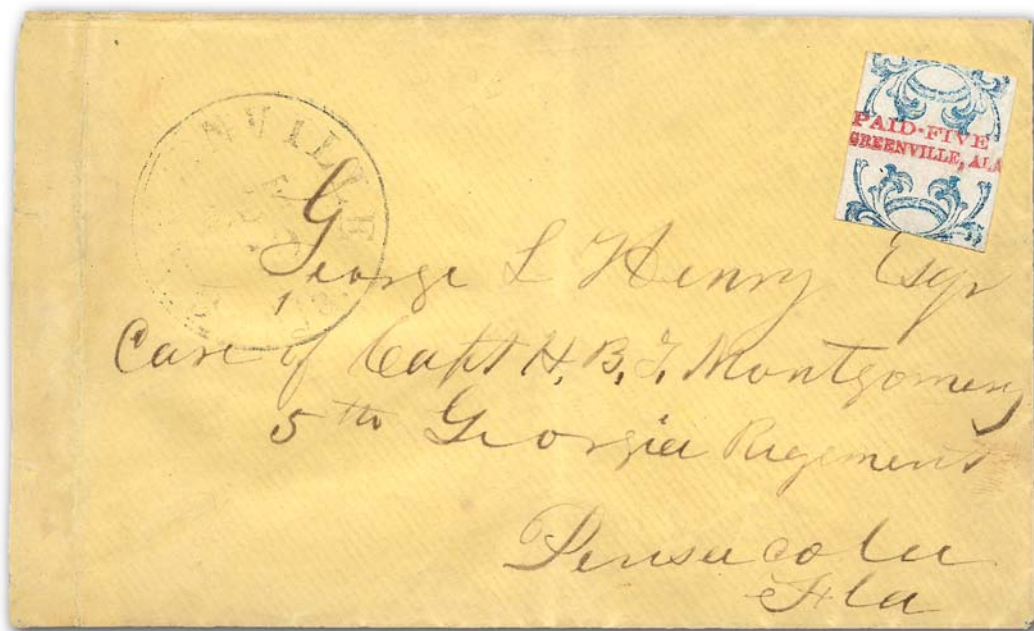 NVILLE
1
PAID·FIVE
GREENVILLE, ALA
George L Henry Esqr
Care of Capt H. B. T. Montgomery
5th Georgia Regiment
Pensacola
Fla